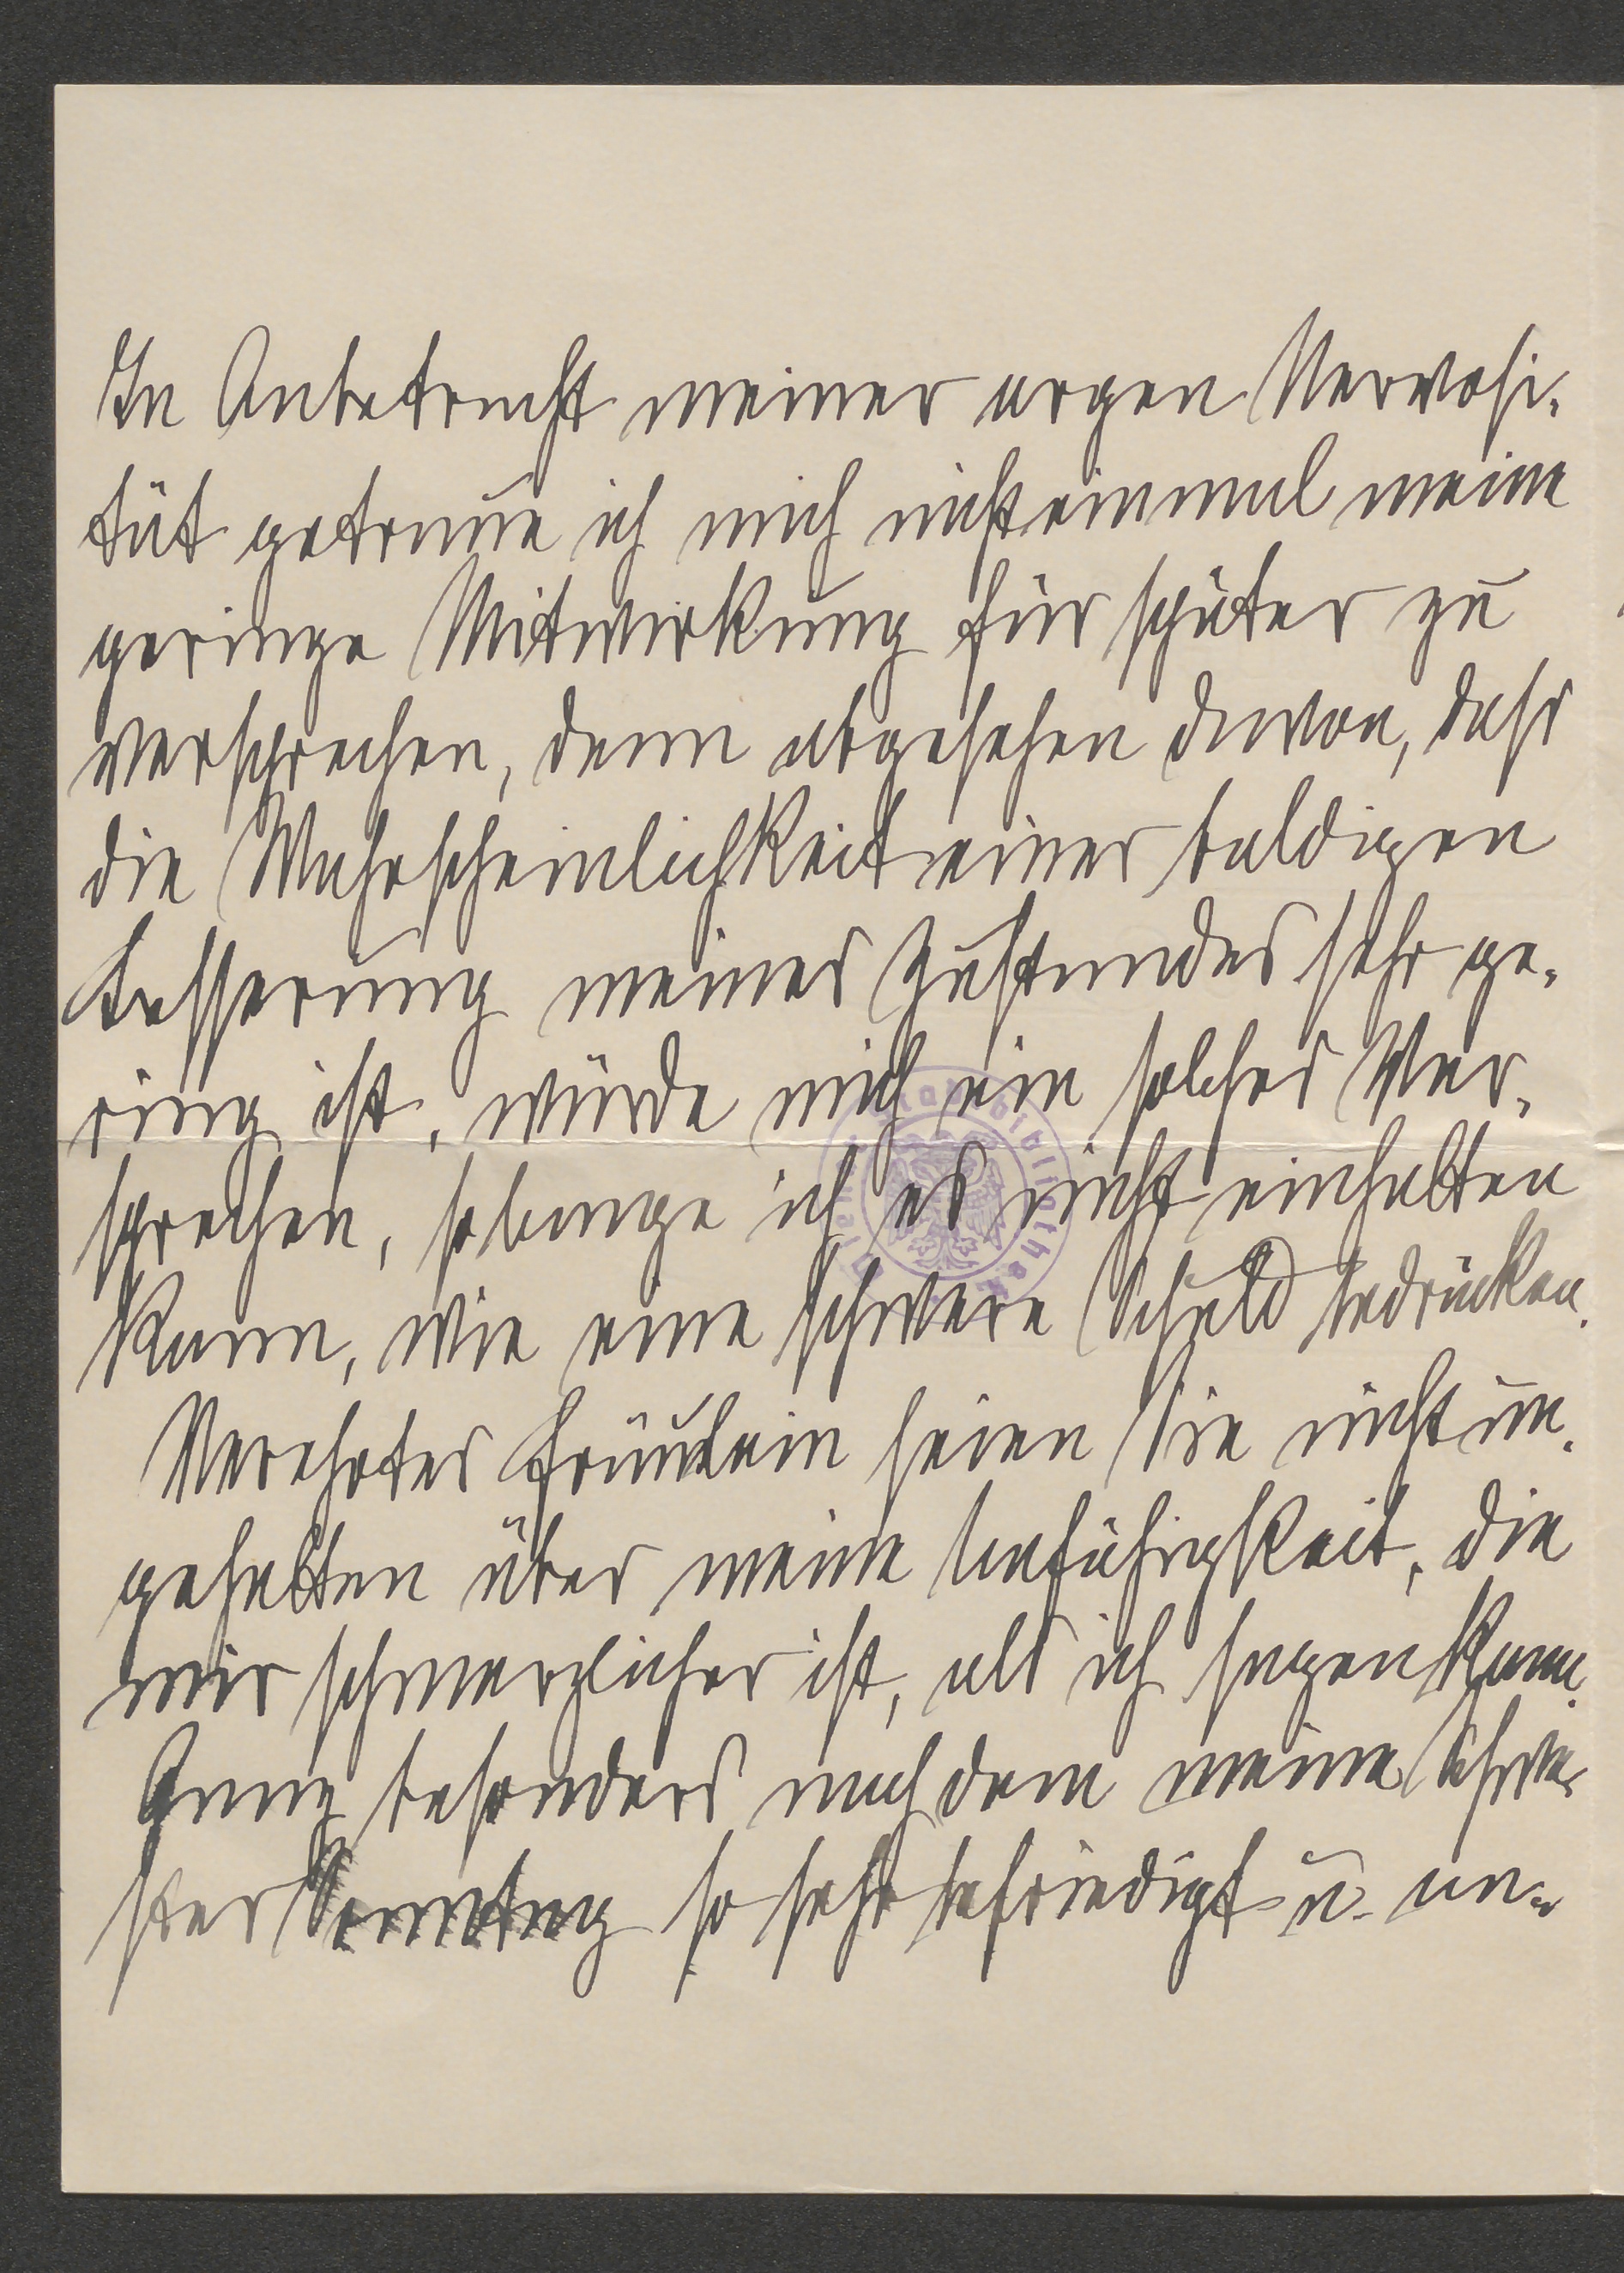 In Anbetracht meiner argen Nervosi-
tät getraue ich mich nicht einmal meine
geringe Mitwirkung für später zu
versprechen, denn abgesehen davon, dass
die Wahrscheinlichkeit einer baldigen
Besserung meines Zustandes sehr ge-
ring ist, würde mich ein solches Ver-
sprechen, solange ich es nicht einhalten
kann, wie eine schwere Schuld bedrücken.
Verehrtes Fräulein seien Sie nicht un-
gehalten über meine Unfähigkeit, die
mir schmerzlicher ist, als ich sagen kann.
Ganz besonders nach dem meine Schwe-
ster Sonntag so sehr befriedigt u. an-